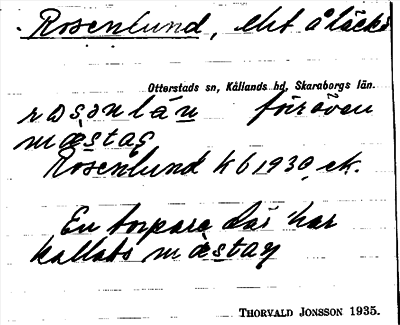 Rosenlund, ebt å läckö
Otterstads sn, Kållands hd, Skaraborgs län.
rɷsənlún förr även
mæstaɡ
Rosenlund kb 1930 ek.
En torpare där har
kallats mæstaɡ
THORVALD JONSSON 1935.